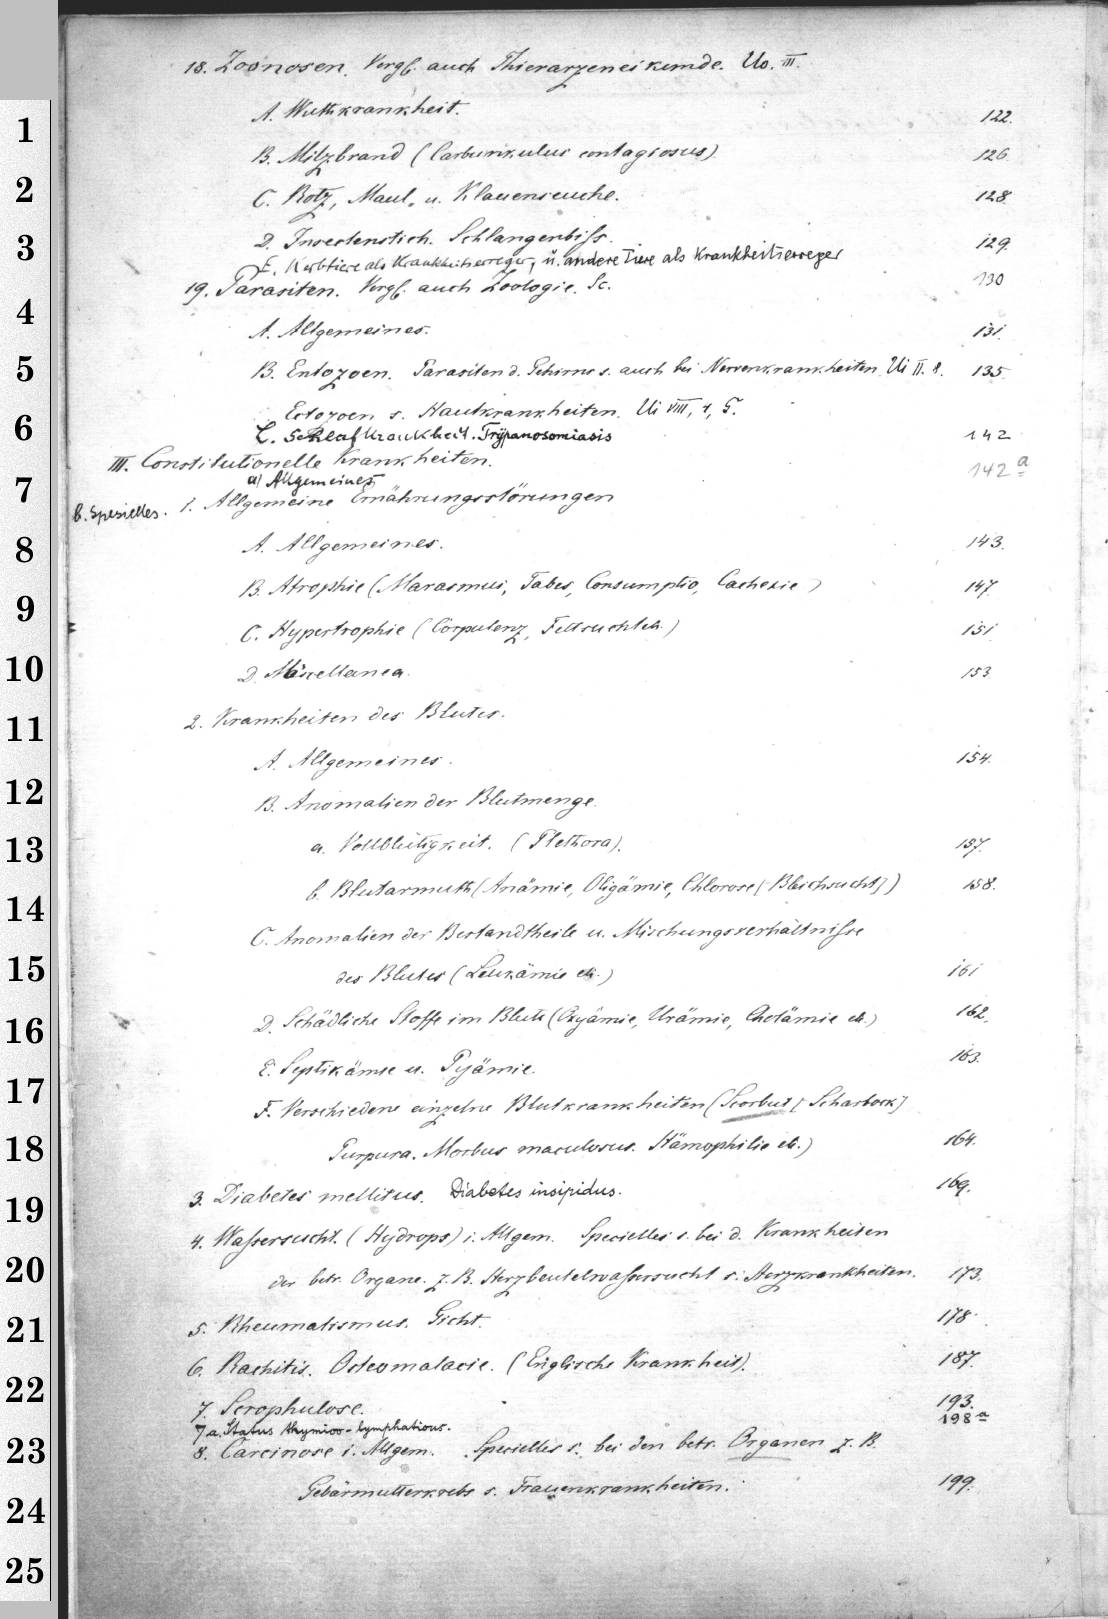 18. Zoonosen. Vergl. auch Thierarzeneikunde. Uo. III.
A. Wuthkrankheit. 122.
1
B. Milzbrand (Carbunkulus contagiosus) 126
2
C. Rotz, Maul- u. Klauenseuche. 128
D. Insectenstich. Schlangenbiss. 129.
3
E. Kerbtiere als Krankheitserreger, u. andere Tiere als Krankheitserreger
19. Parasiten. Vergl. auch Zoologie. Sc. 130
4
A. Allgemeines. 131.
5
B. Entozoen. Parasiten d. Gehirns s. auch bei Nervenkrankheiten Ui II. 8. 135
Ectozoen s. Hautkrankheiten. Ui VIII, 1, 5.
6
C. Schlafkrankheit. Trypanosomiasis 142
III. Constitutionelle Krankheiten. 142 a
a) Allgemeines
7
b. Spezielles. 1. Allgemeine Ernährungsstörungen
8
A. Allgemeines. 143.
9
B. Atrophie (Marasmus, Tabes, Consumptio, Cachexie) 147.
C. Hypertrophie (Corpulenz, Fettsucht etc.) 151
10
D. Miscellanea. 153
11
2. Krankheiten des Blutes.
A. Allgemeines. 154.
12
B. Anomalien der Blutmenge.
13
a. Vollblütigkeit. (Plethora). 157.
14
b. Blutarmuth (Anämie, Oligämie, Chlorose [Bleichsucht]) 158.
C. Anomalien der Bestandtheile u. Mischungsverhältnisse
15
des Blutes (Leukämie etc.) 161
16
D. Schädliche Stoffe im Blute (Urämie, Cholämie etc.) 162.
E. Septikämie u. Pyämie. 163.
17
F. Verschiedene einzelne Blutkrankheiten (Scorbut [Scharbock]
18
Purpura. Morbus maculosus. Hämophilie etc.) 164.
19
3. Diabetes mellitus. Diabetes insipidus. 169.
4. Wassersucht. (Hydrops) i. Allgem. Specielles s. bei d. Krankheiten
20
der betr. Organe. z. B. Herzbeutelwassersucht s. Herzkrankheiten. 173.
21
5. Rheumatismus. Gicht. 178
22
6. Rachitis. Osteomalacie. (Englische Krankheit). 187.
7. Scrophulose. 193.
7a. Status thymico-lymphaticus. 198 a
23
8. Carcinose i. Allgem. Specielles s. bei den betr. Organen z. B.
24
Gebärmutterkrebs s. Frauenkrankheiten. 199.
25